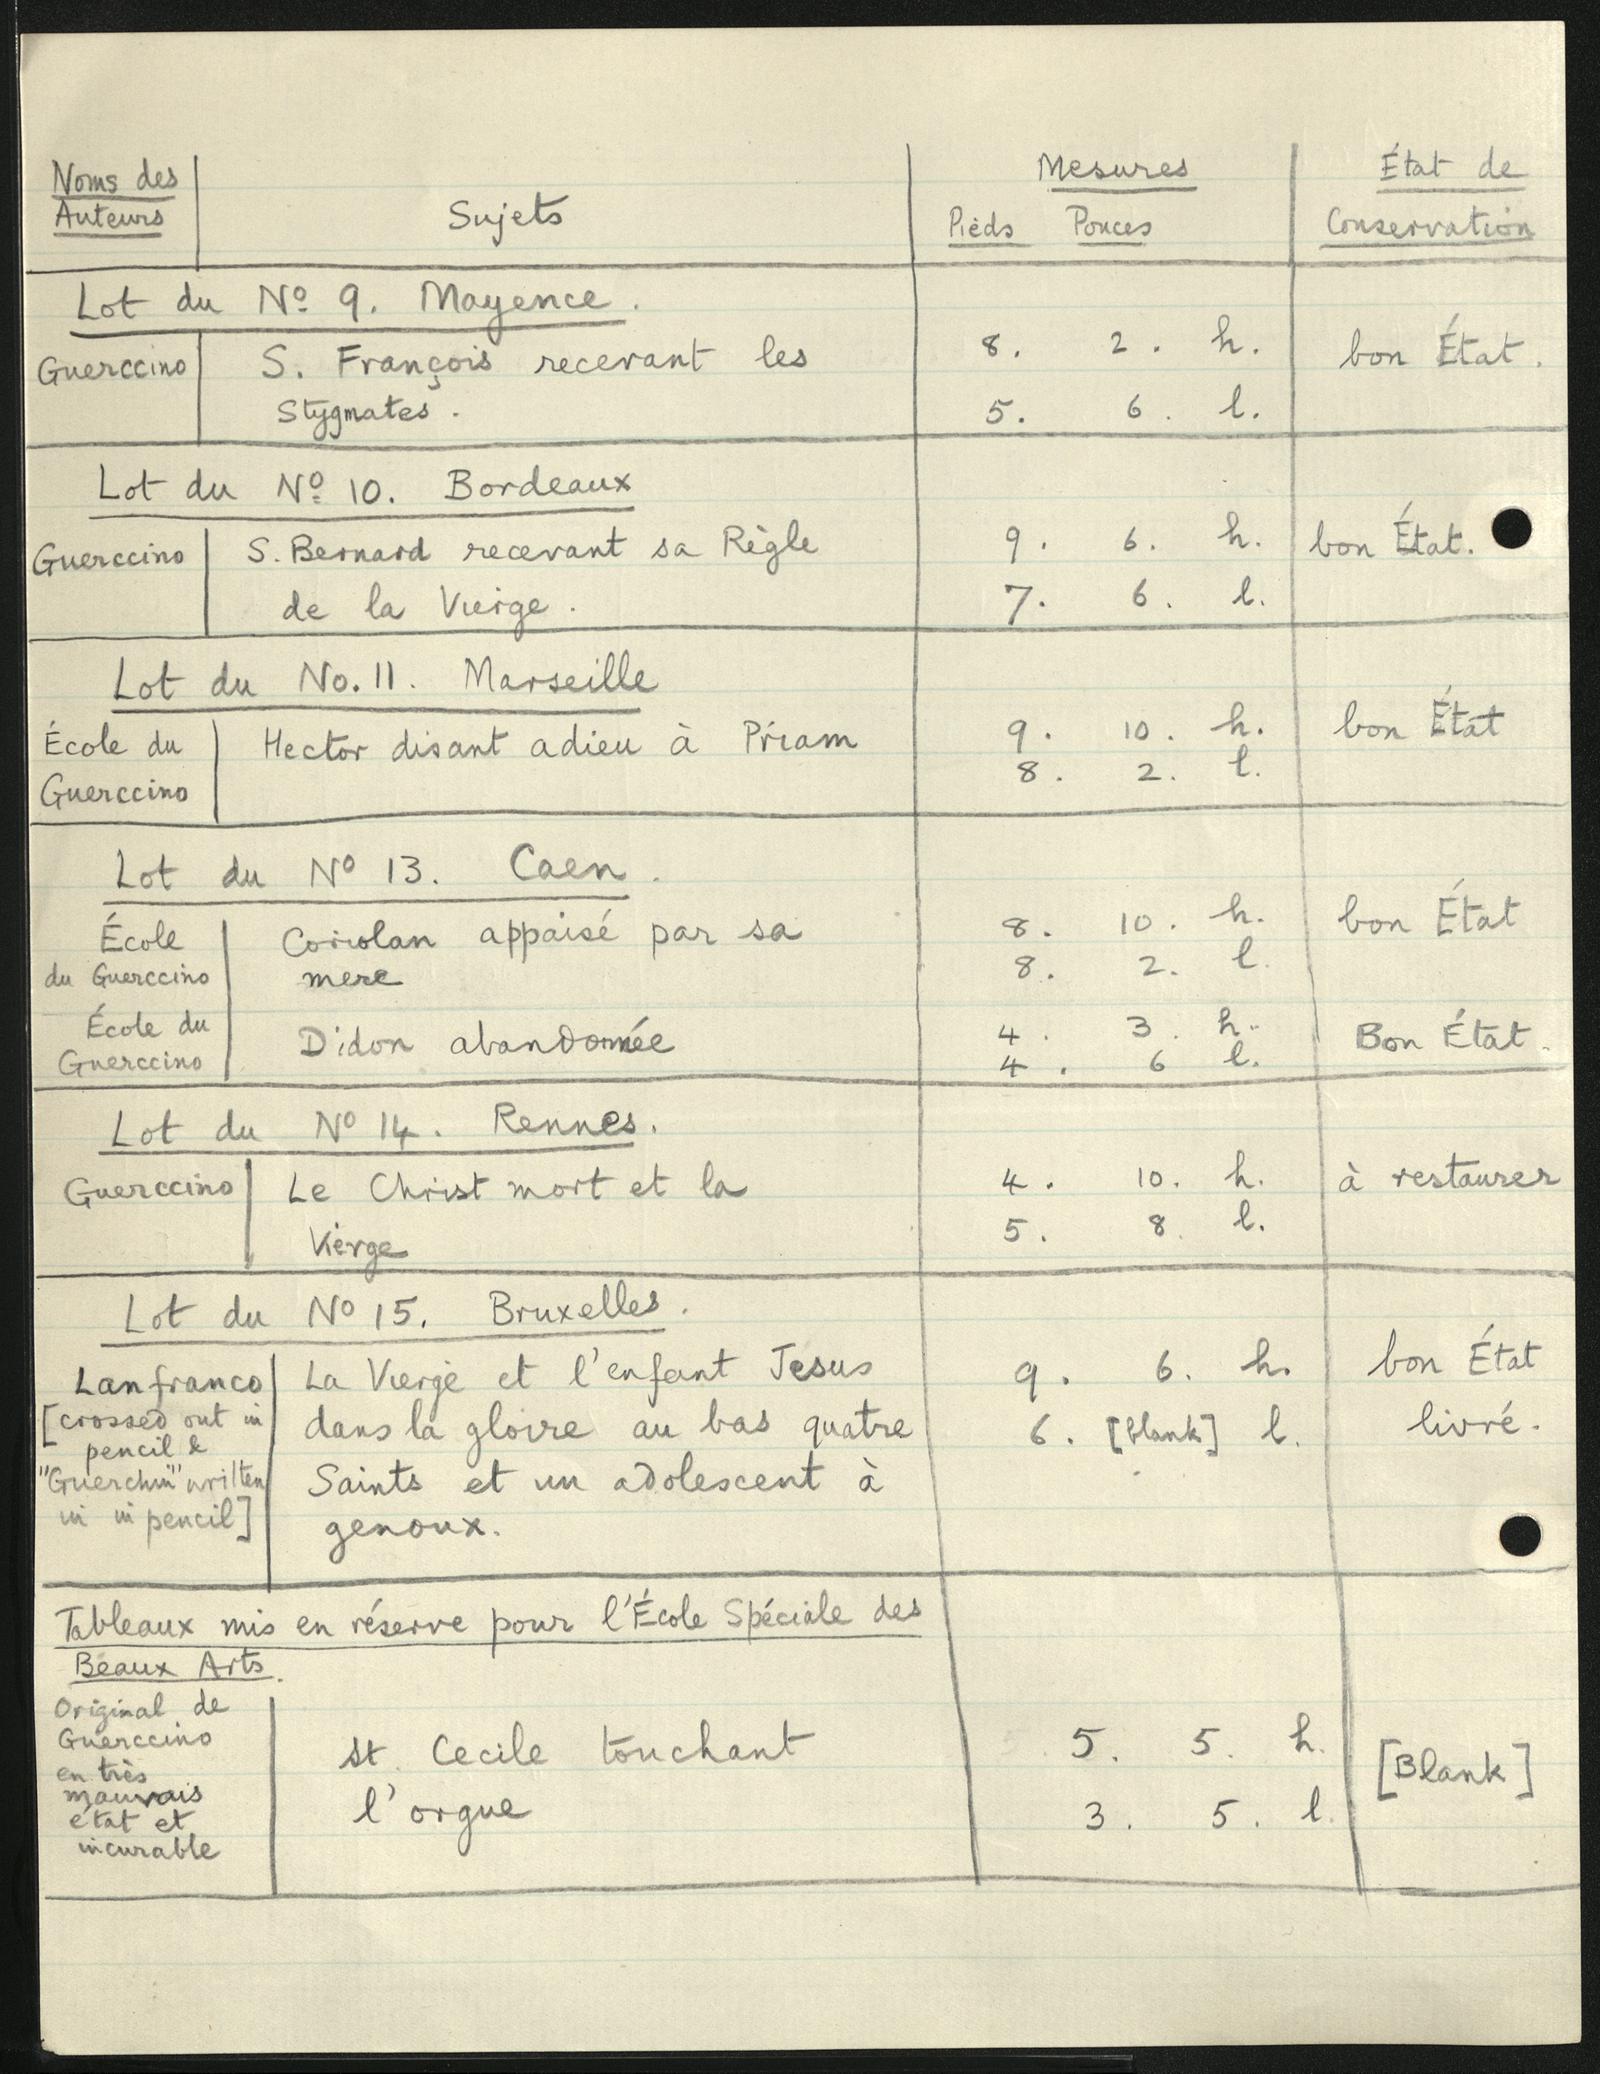 Noms des Auteurs | Sujets | Mesures | État de
Pieds Pouces | Conservation
Lot du Nº 9. Mayence.
Guerccino | S. François recevant les | 8. 2. h. | bon État.
Stygmates. | 5. 6. l.
Lot du Nº 10. Bordeaux
Guerccino | S. Bernard recevant sa Règle | 9. 6. h. | bon État.
de la Vierge. | 7. 6. l.
Lot du No. 11. Marseille
École du | Hector disant adieu à Priam | 9. 10. h. | bon État
Guerccino | 8. 2. l.
Lot du Nº 13. Caen.
École | Coriolan appaisé par sa | 8. 10. h. | bon État
du Guerccino | mere | 8. 2. l.
École du | Didon abandonnée | 4. 3. h. | Bon État.
Guerccino | 4. 6 l.
Lot du Nº 14. Rennes.
Guerccino | Le Christ mort et la | 4. 10. h. | à restaurer
Vierge | 5. 8. l.
Lot du Nº 15. Bruxelles.
Lanfranco | La Vierge et l'enfant Jesus | 9. 6. h. | bon État
[crossed out in | dans la gloire au bas quatre | 6. [blank] l. | livré.
pencil &
"Guerchin" written | Saints et un adolescent à
in in pencil] | genoux.
Tableaux mis en réserve pour l'École Spéciale des
Beaux Arts.
Original de
Guerccino | St. Cecile touchant | 5. 5. h. | [Blank]
en très
mauvais | l'orgue | 3. 5. l.
état et
incurable